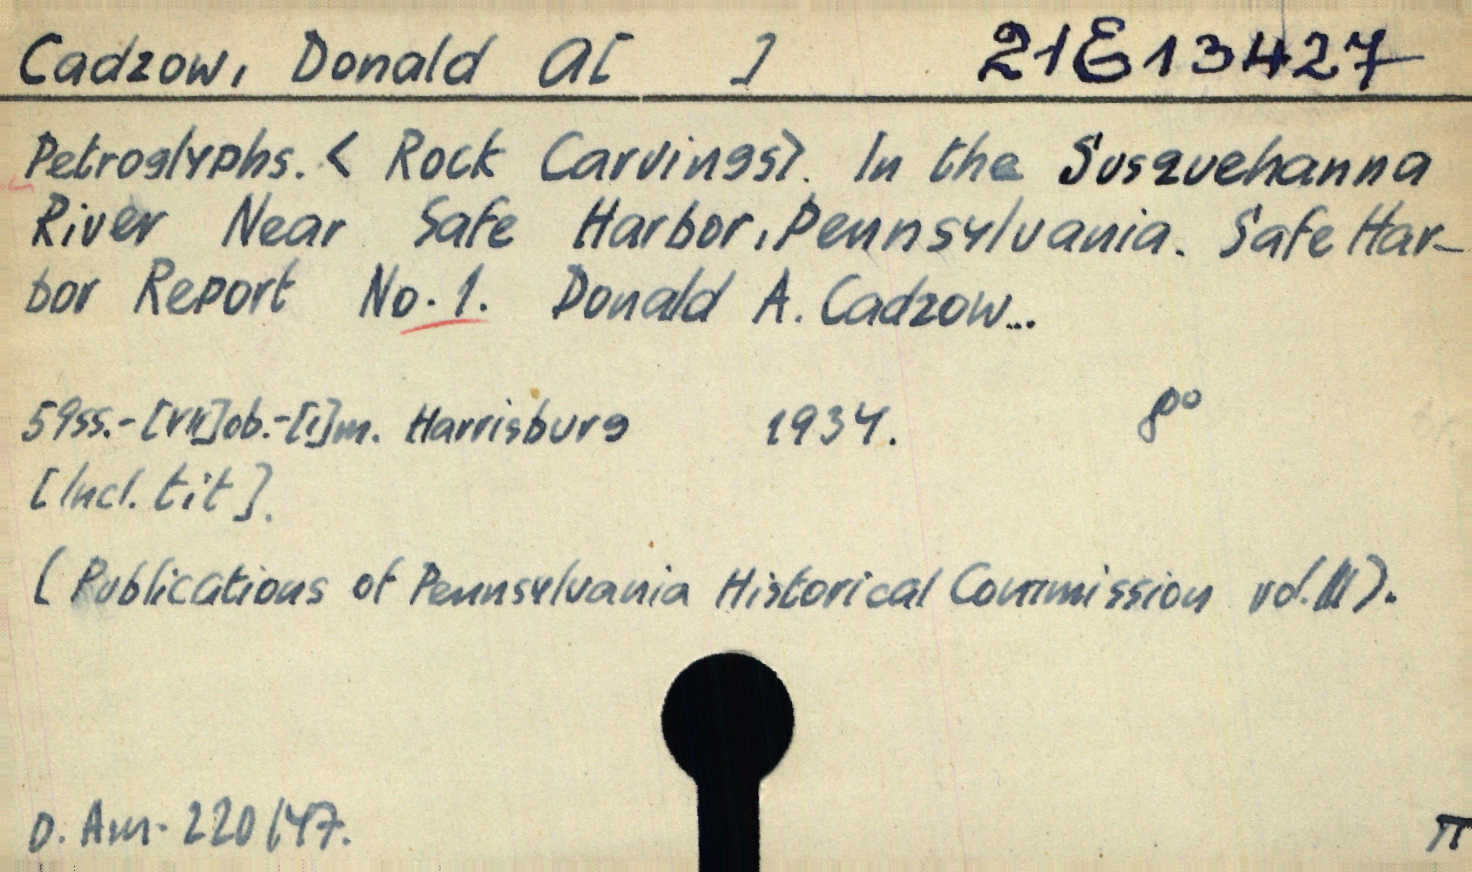 Cadzow, Donald A[ ] 21E13427
Petroglyphs. < Rock Carvings>. In the Susquehanna
River Near Safe Harbor, Pennsylvania. Safe Har-
bor Report No. 1. Donald A. Cadzow...
59ss.-[VII]ob.-[1]m. Harrisburg 1934. 8°
[Incl. tit].
(Publications of Pennsylvania Historical Commission vol. III).
D. Am. 220/47. π